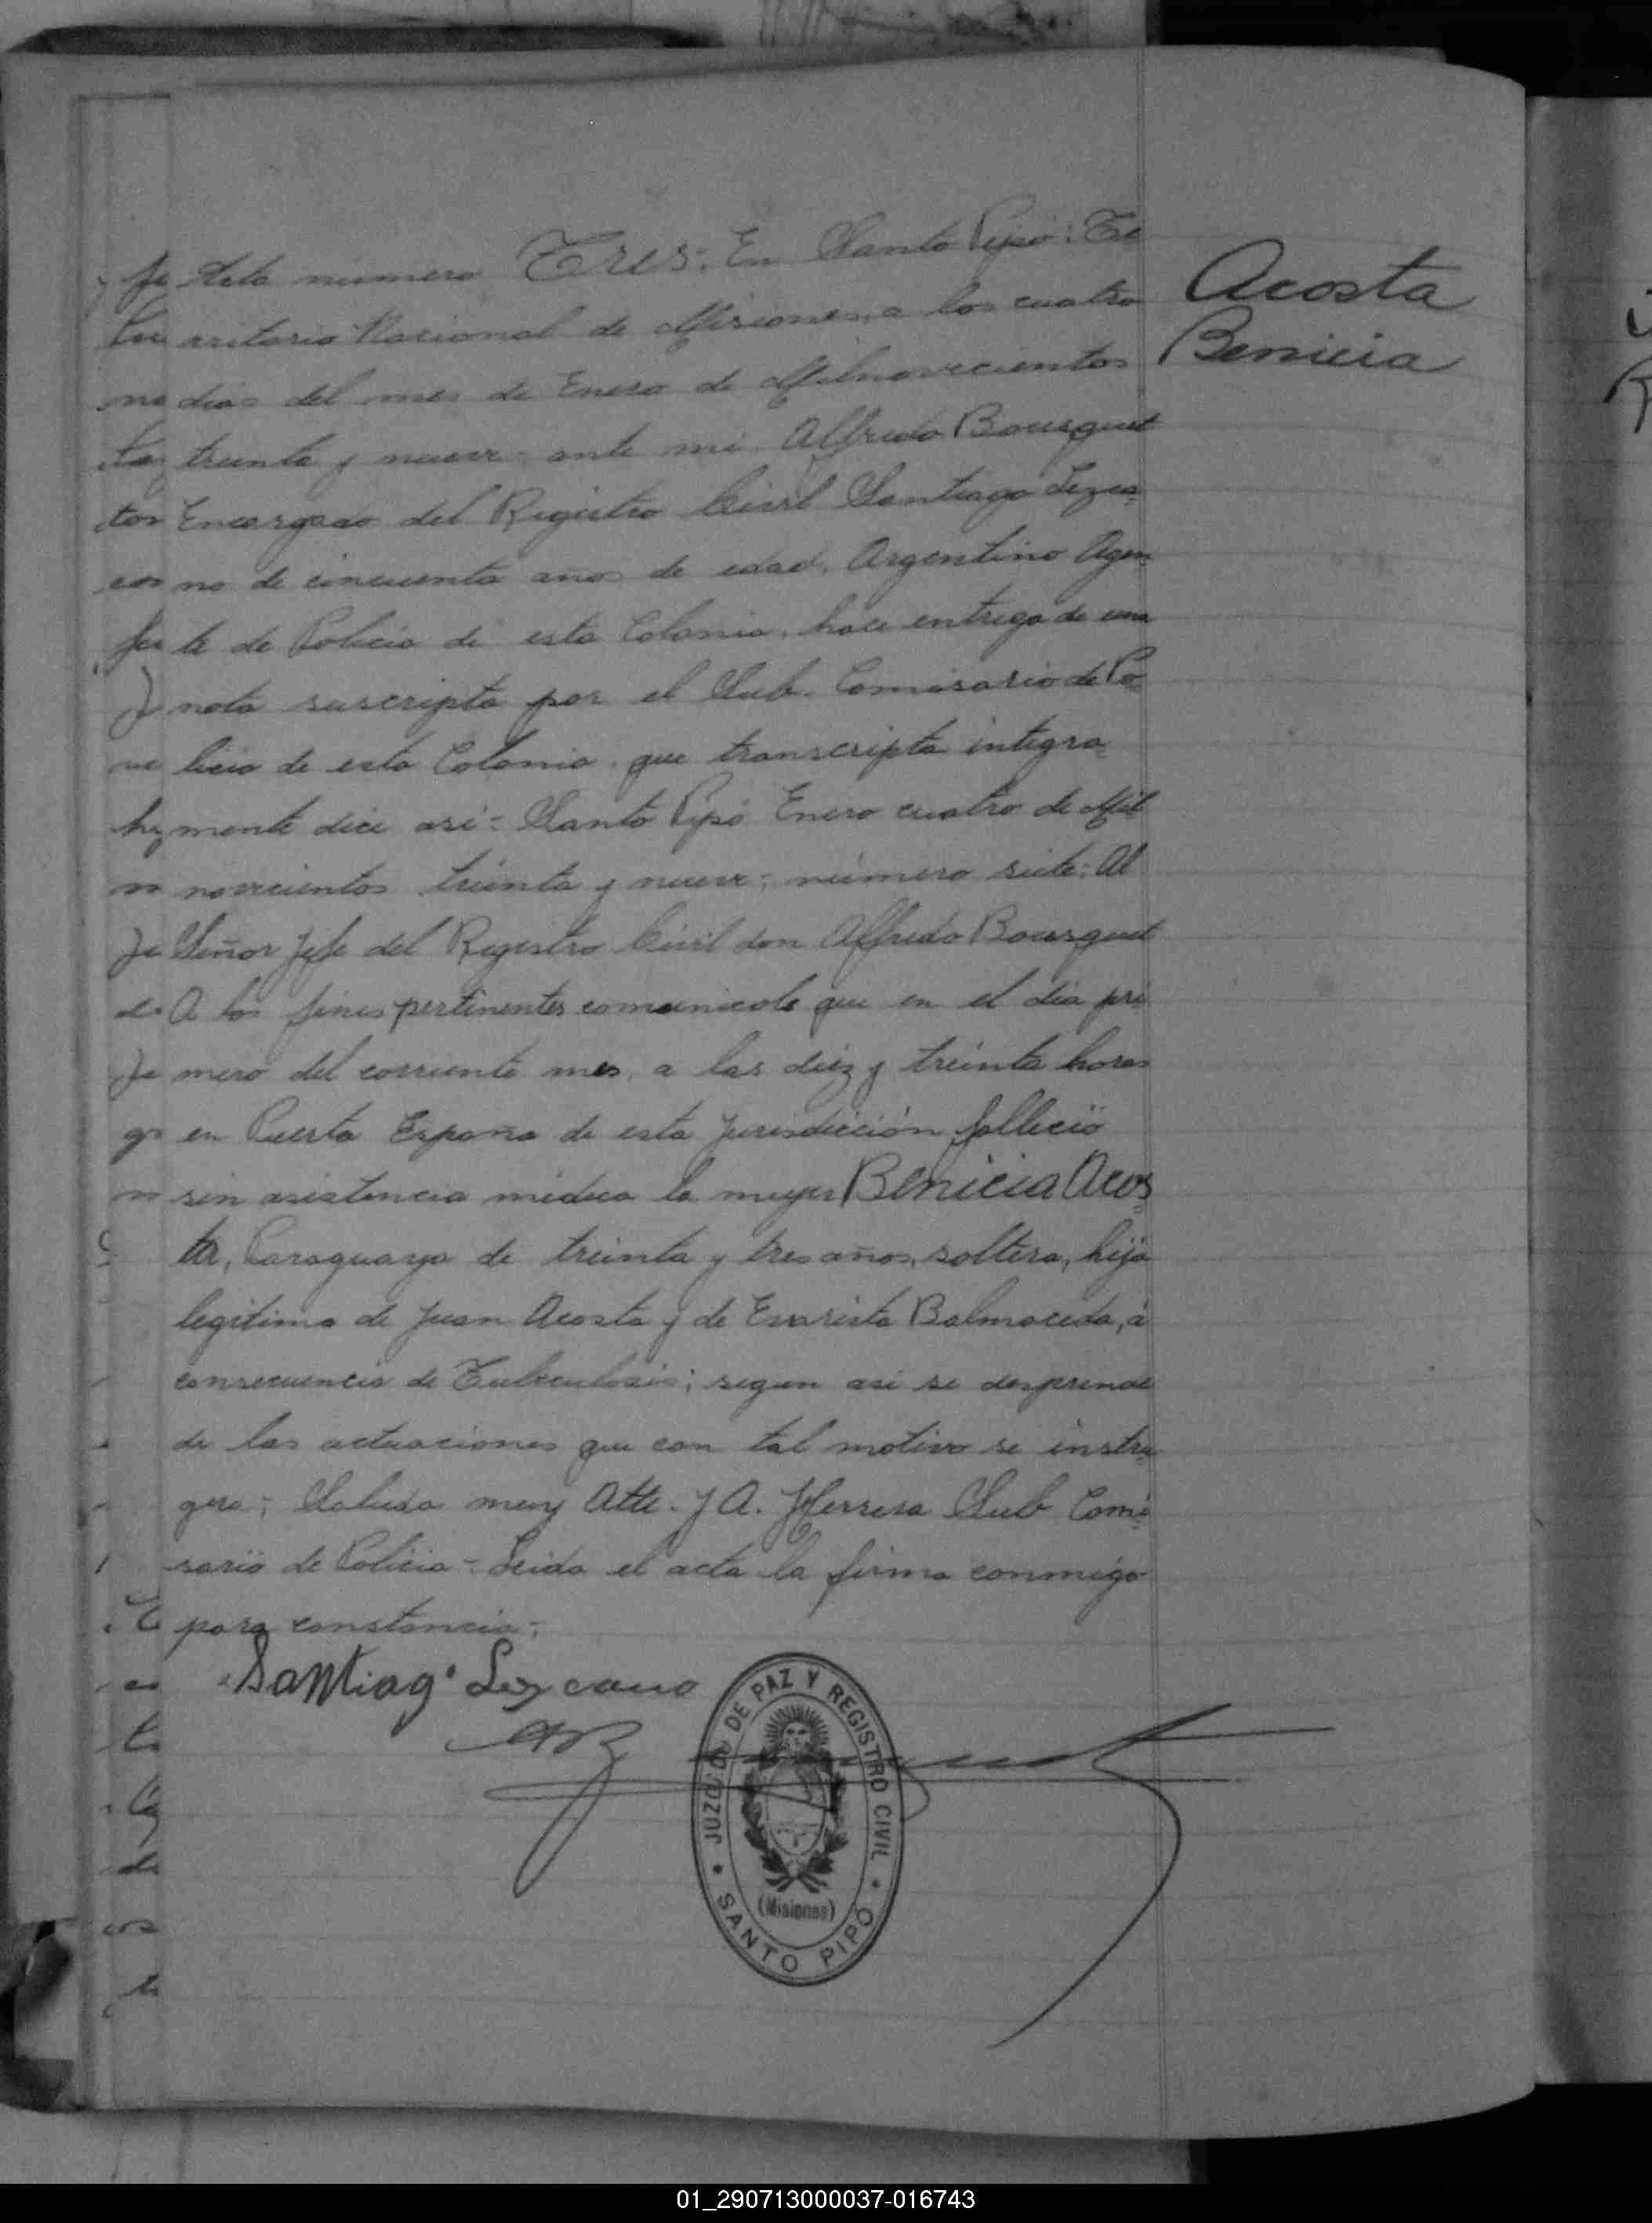 Acta número Tres: En Santo Pipó: Te
rritorio Nacional de Misiones, a los cuatro
dias del mes de Enero de Milnovecientos
treinta y nueve, ante mi Alfredo Bousquet
Encargado del Registro Civil Santiago Lezca=
no de cincuenta años de edad, Argentino Agen
te de Policia de esta Colonia, hace entrega de una
nota suscripta por el Sub. Comisario de Po=
licia de esta Colonia, que transcripta integra=
mente dice asi: Santo Pipó Enero cuatro de Mil
novecientos treinta y nueve; número siete: Al
Señor Jefe del Registro Civil don Alfredo Bousquet
A los fines pertinentes comunicole que en el dia pri
mero del corriente mes, a las diez y treinta horas
en Puerto España de esta Jurisdicción falleció
sin asistencia médica la mujer Benicia Acos=
ta, Paraguaya de treinta y tres años, soltera, hija
legitima de Juan Acosta y de Evarista Balmaceda, á
consecuencia de Tuberculosis; segun asi se desprende
de las actuaciones que con tal motivo se instru=
yera; Saluda muy Atte. J A. Herrera Sub Comi=
sario de Policia = Leida el acta la firma conmigo
para constancia:
Santiag° Lezcano
Acosta
Benicia
JUZGADO DE PAZ Y REGISTRO CIVIL
(Misiones)
SANTO PIPÓ
01_290713000037-016743